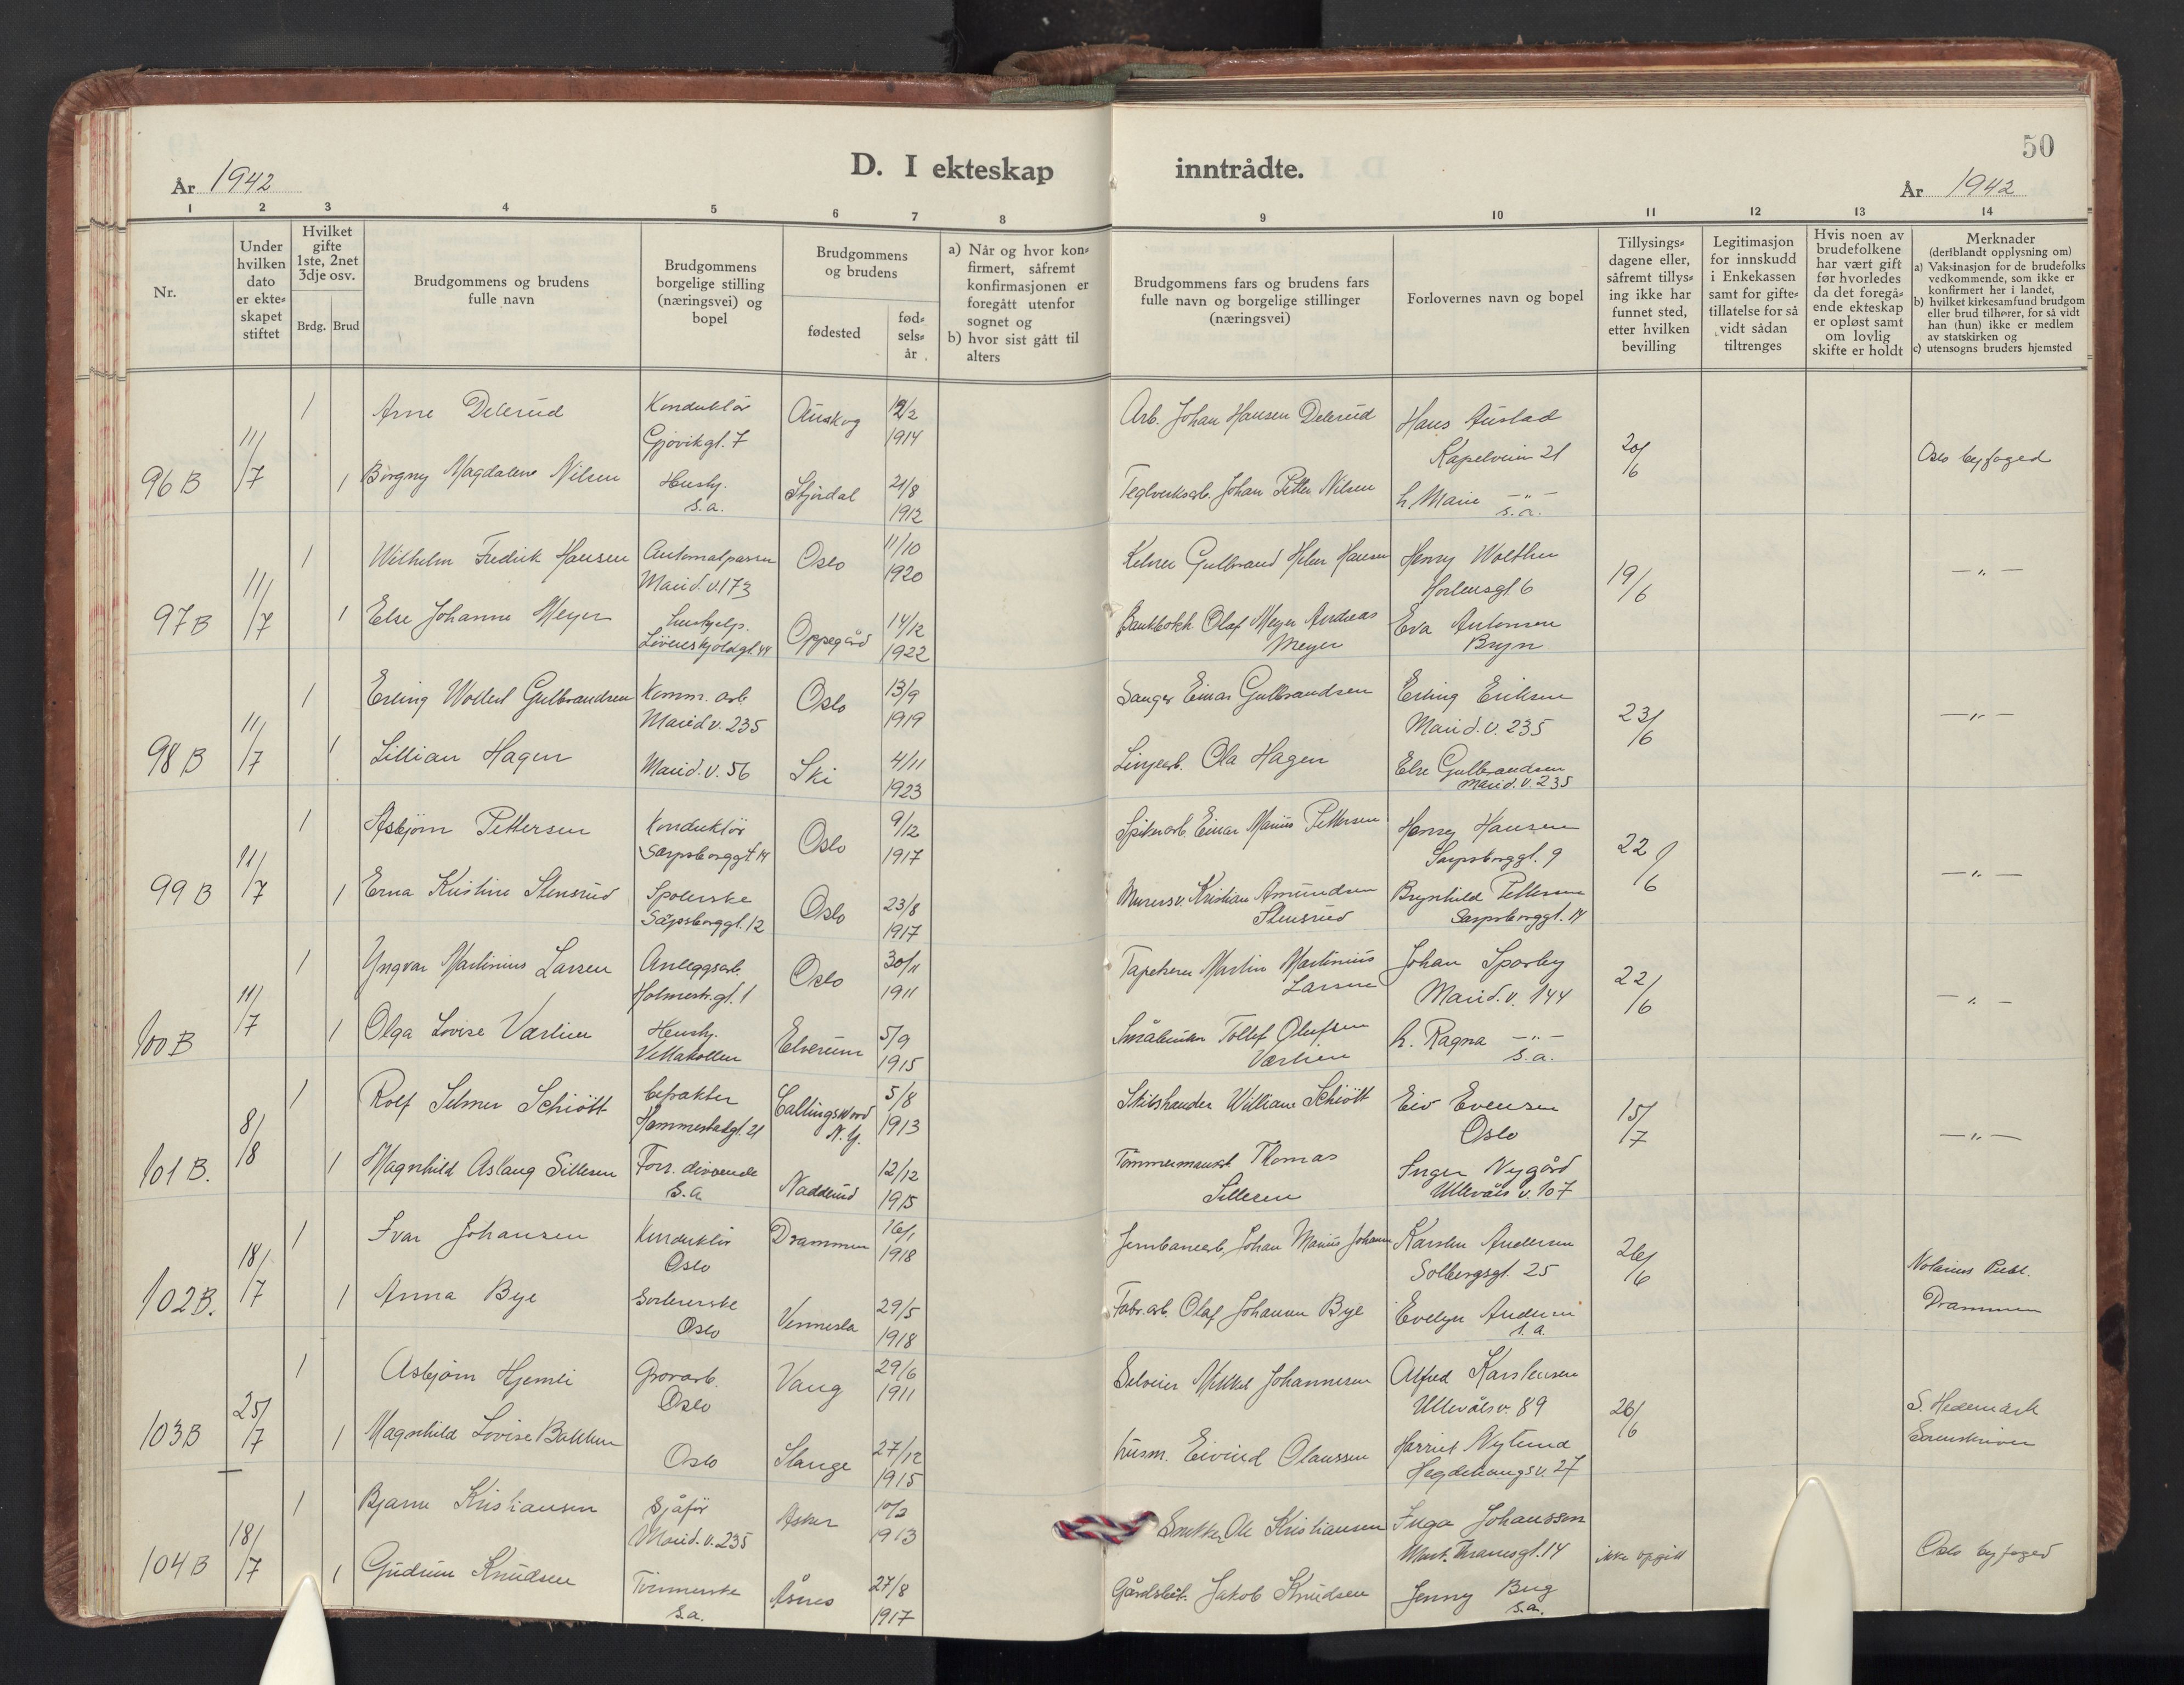 50
År 1942
D. I ekteskap inntrådte.
År 1942
1 2 3 4 5 6 7 8 9 10 11 12 13 14
Nr.
Under hvilken dato er ekte- skapet stiftet
Hvilket gifte 1ste, 2net 3dje osv.
Brdg. Brud
Brudgommens og brudens fulle navn
Brudgommens borgelige stilling (næringsvei) og bopel
Brudgommens og brudens
fødested
fød- sels- år
a) Når og hvor kon- firmert, såfremt konfirmasjonen er foregått utenfor sognet og
b) hvor sist gått til alters
Brudgommens fars og brudens fars fulle navn og borgelige stillinger (næringsvei)
Forlovernes navn og bopel
Tillysings- dagene eller, såfremt tillys- ing ikke har funnet sted, etter hvilken bevilling
Legitimasjon for innskudd i Enkekassen samt for gifte- tillatelse for så vidt sådan tiltrenges
Hvis noen av brudefolkene har vært gift før hvorledes da det foregå- ende ekteskap er opløst samt om lovlig skifte er holdt
Merknader
(deriblandt opplysning om)
a) Vaksinasjon for de brudefolks vedkommende, som ikke er konfirmert her i landet,
b) hvilket kirkesamfund brudgom eller brud tilhører, for så vidt han (hun) ikke er medlem av statskirken og
c) utensogns bruders hjemsted
96 B 11/7
1 Arne Delerud Konduktör Gjövikgt. 7 Auskog 12/2 1914 Arb. Johan Hansen Delerud Hans Austad Kapelveien 21 20/6 Oslo byfoged
1 Borgny Magdalene Nilsen Husbj. s.a. Stjördal 21/8 1912 Teglverksarb. Johan Petter Nilsen h. Marie —"— s.a.
97 B 11/7
1 Wilhelm Fredrik Hansen Automatpasser Marid.v. 173 Oslo 11/10 1920 Kelner Gulbrand Hansen Henry Wolther Horlensgt 6 19/6 —"—
1 Else Johanne Meyer Hushjelp. Lövenskjoldgt. 44 Oppegård 14/12 1922 Bankbokh. Olaf Meyer Andreas Meyer Eva Antonsen Bryn
98 B 11/7
1 Erling Wollert Gulbrandsen Komm. arb. Marid.v. 235 Oslo 13/9 1919 Sanger Einar Gulbrandsen Erling Eriksen Marid.v. 235 23/6 —"—
1 Lillian Hagen Marid.v. 56 Ski 4/11 1923 Linjearb. Ola Hagen Else Gulbrandsen Marid.v. 235
99 B 11/7
1 Asbjörn Pettersen Konduktör Sarpsborggt 14 Oslo 9/12 1917 Spikerarb. Einar Marius Pettersen Henry Hansen Sarpsborggt. 9 22/6 —"—
1 Erna Kristine Stensrud Spolerske Sarpsborggt. 12 Oslo 23/8 1917 Murersv. Kristian Amundsen Stensrud Brynhild Pettersen Sarpsborggt. 14
100 B 11/7
1 Yngvar Martinius Larsen Anleggsarb. Holmestr.gt. 1 Oslo 30/11 1911 Tapetserer Martin Martinius Larsen Johan Sparby Marid.v. 144 22/6 —"—
1 Olga Lovise Værlien Husbj. Vettakollen Elverum 5/9 1915 Småbruker Tollef Olufsen Værlien h. Ragna —"— s.a.
101 B. 8/8
1 Rolf Selmer Schiött befrakter Hammerstadgt. 21 Callingswood N.Y. 5/8 1913 Skibshandler William Schiött Eiv Evensen Oslo 15/7 —"—
1 Magnhild Aslaug Sillesen Forr. drivende s.a. Nadderud 12/12 1915 Tömmermannsk. Thomas Sillesen Inger Nygård Ullevålsv. 107
102 B. 18/7
1 Ivar Johansen Konduktör Oslo Drammen 16/1 1918 Jernbanearb. Johan Marius Johansen Karsten Andersen Solbergsgt. 25 26/6 Notarius Publ. Drammen
1 Anna Bye Sorterske Oslo Vennesla 29/5 1918 Fabr.arb. Olaf Johannes Bye Evelyn Andersen s.a.
103 B 25/7
1 Asbjörn Hjemli Grovarb. Oslo Vang 29/6 1911 Selveier Mikkel Johannesen Alfred Karstensen Ullevålsv. 89 26/6 S. Hedemark Sorenskriver
1 Magnhild Lovise Bakken Oslo Stange 27/12 1915 husm. Eivind Olaussen Harriet Nylund Hegdehaugsv. 27
104 B 18/7
1 Bjarne Kristiansen Sjåför Marid.v. 235 Asker 10/2 1913 Snekker Ole Kristiansen Inga Johansson Mark. Thranesgt. 14 ikke opgitt Oslo byfoged
1 Gudrun Knudsen Tvinnerske s.a. Åsnes 27/8 1917 Gårdsbest. Jakob Knudsen Jenny Bug s.a.